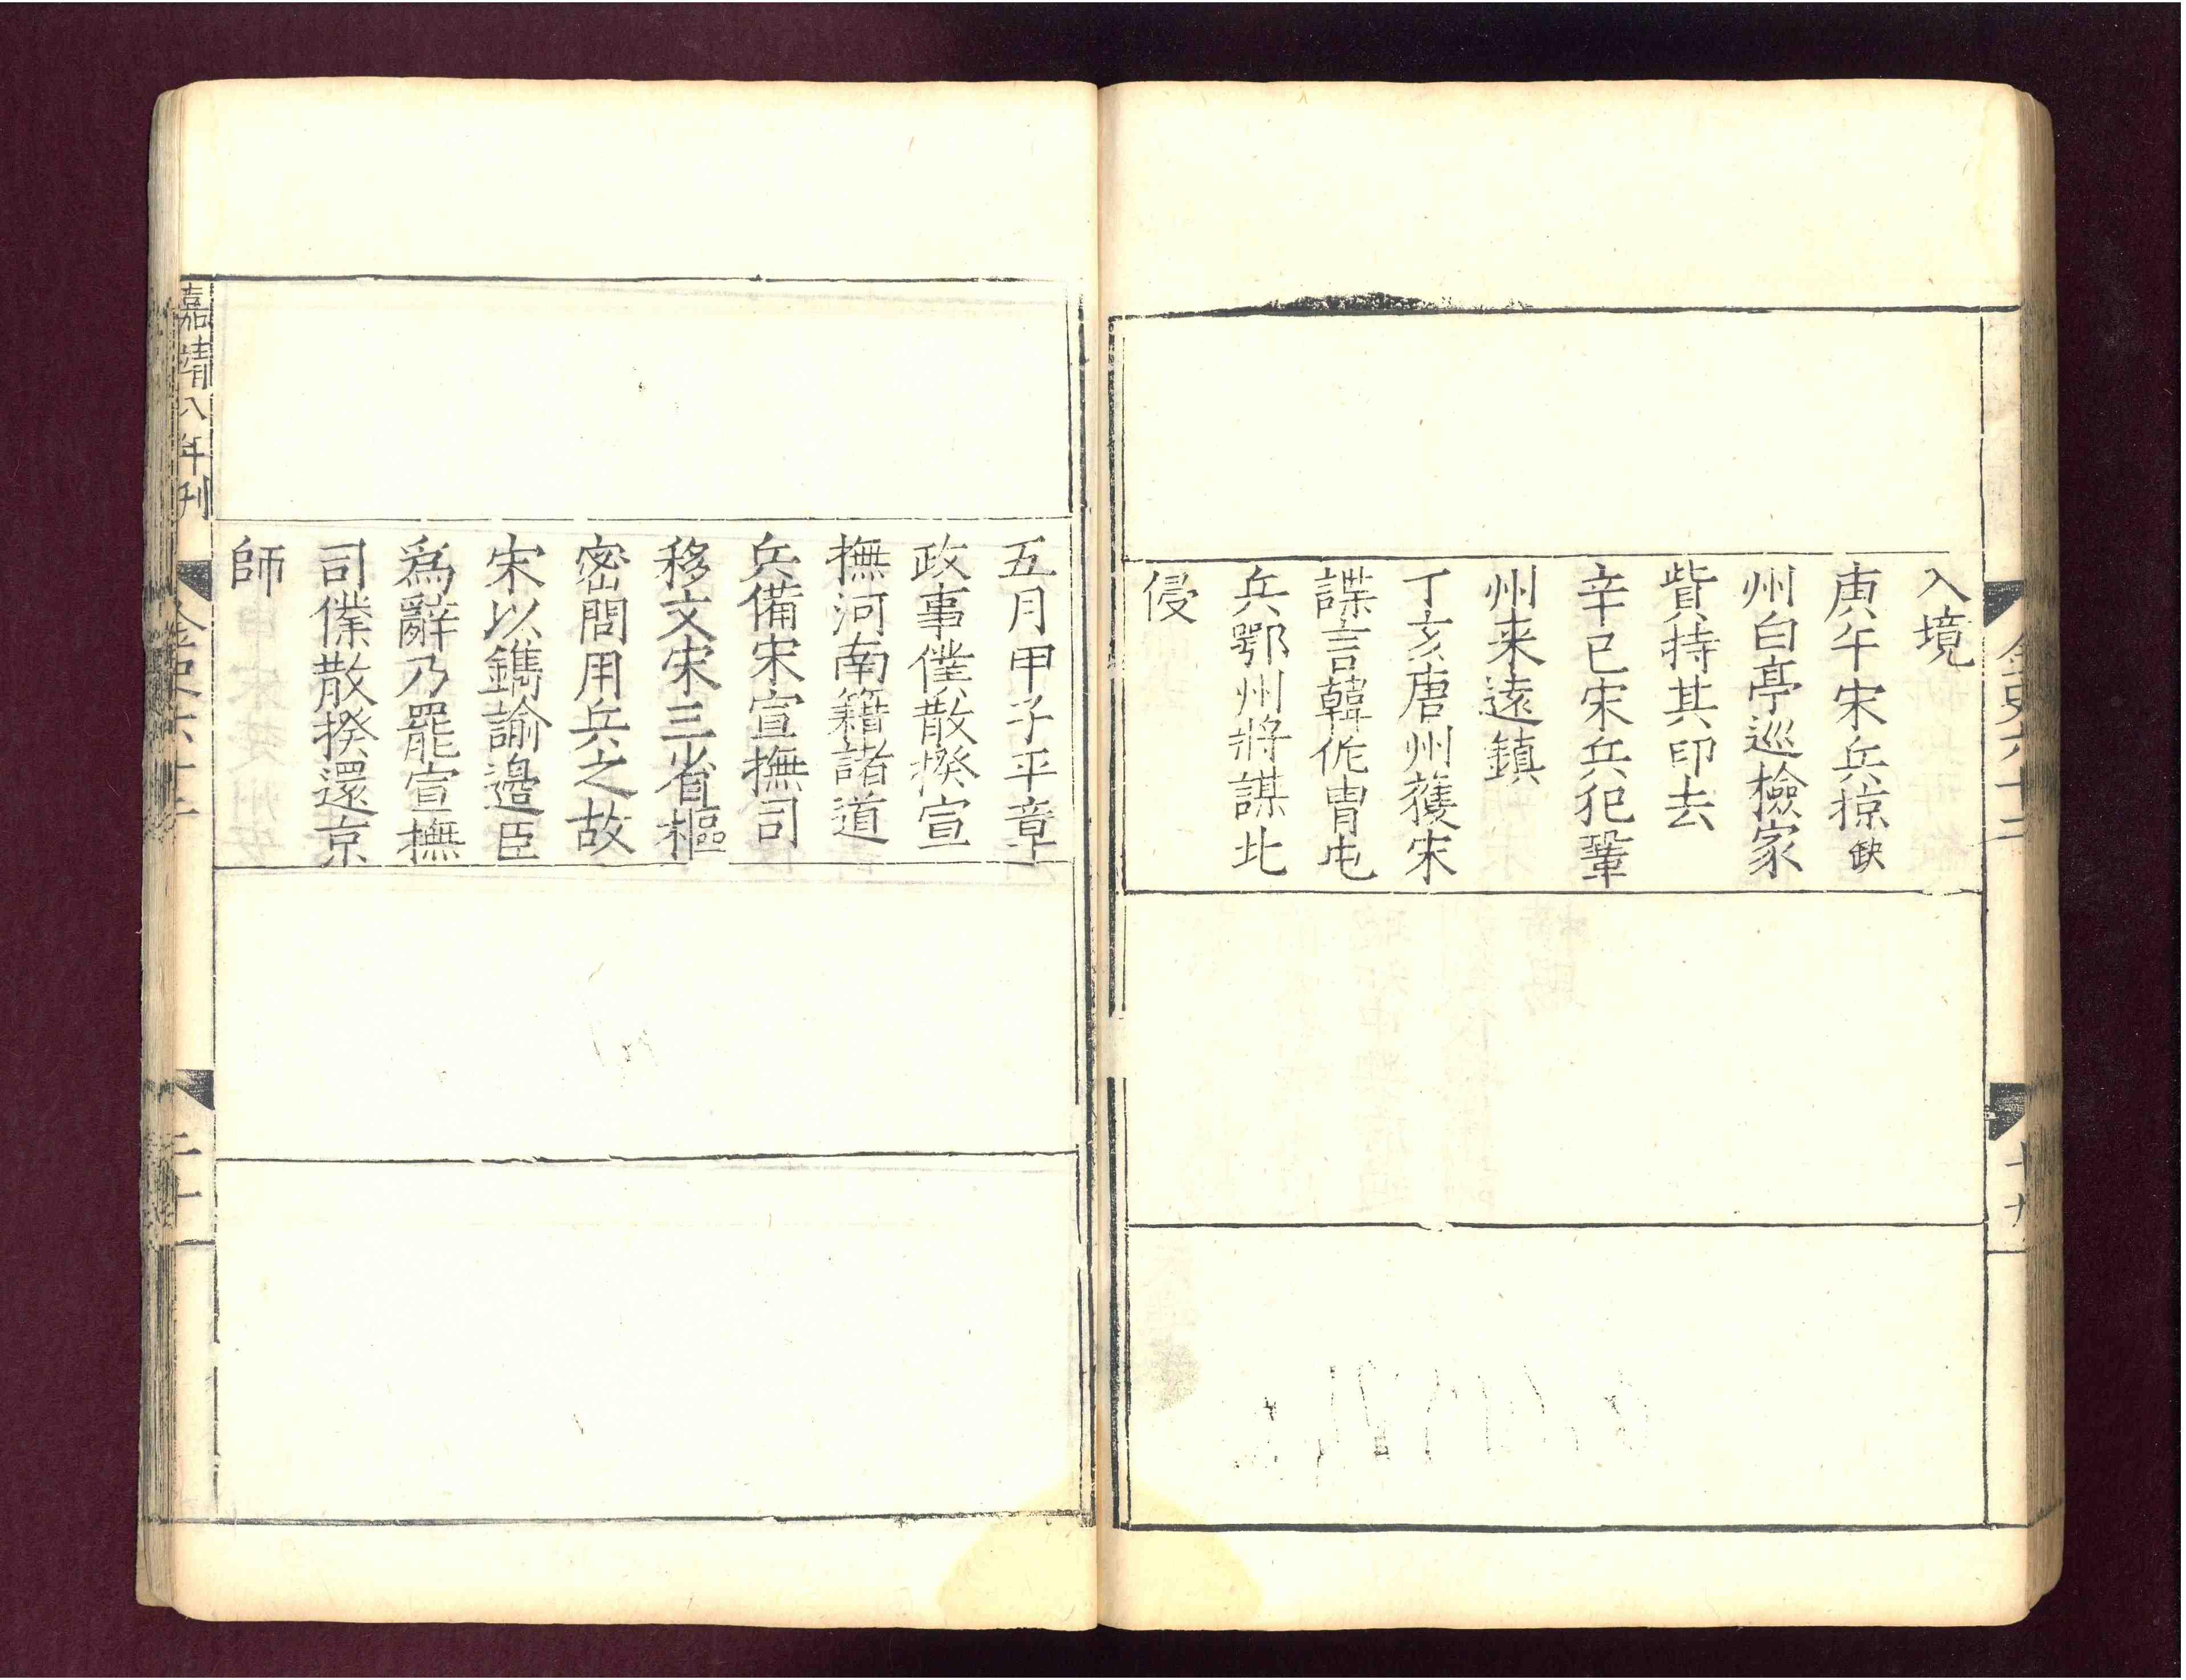 入境
庚午宋兵掠缺
州白亭巡檢家
貲持其印去
辛巳宋兵犯鞏
州来遠鎮
丁亥唐州獲宋
諜言韓侂冑屯
兵鄂州將謀北
侵
金史六十二
十九
五月甲子平章
政事僕散揆宣
撫河南籍諸道
兵備宋宣撫司
移文宋三省樞
密問用兵之故
宋以鐫諭邉臣
爲辭乃罷宣撫
司僕散揆還京
師
嘉靖八年刊
金史六十二
二十